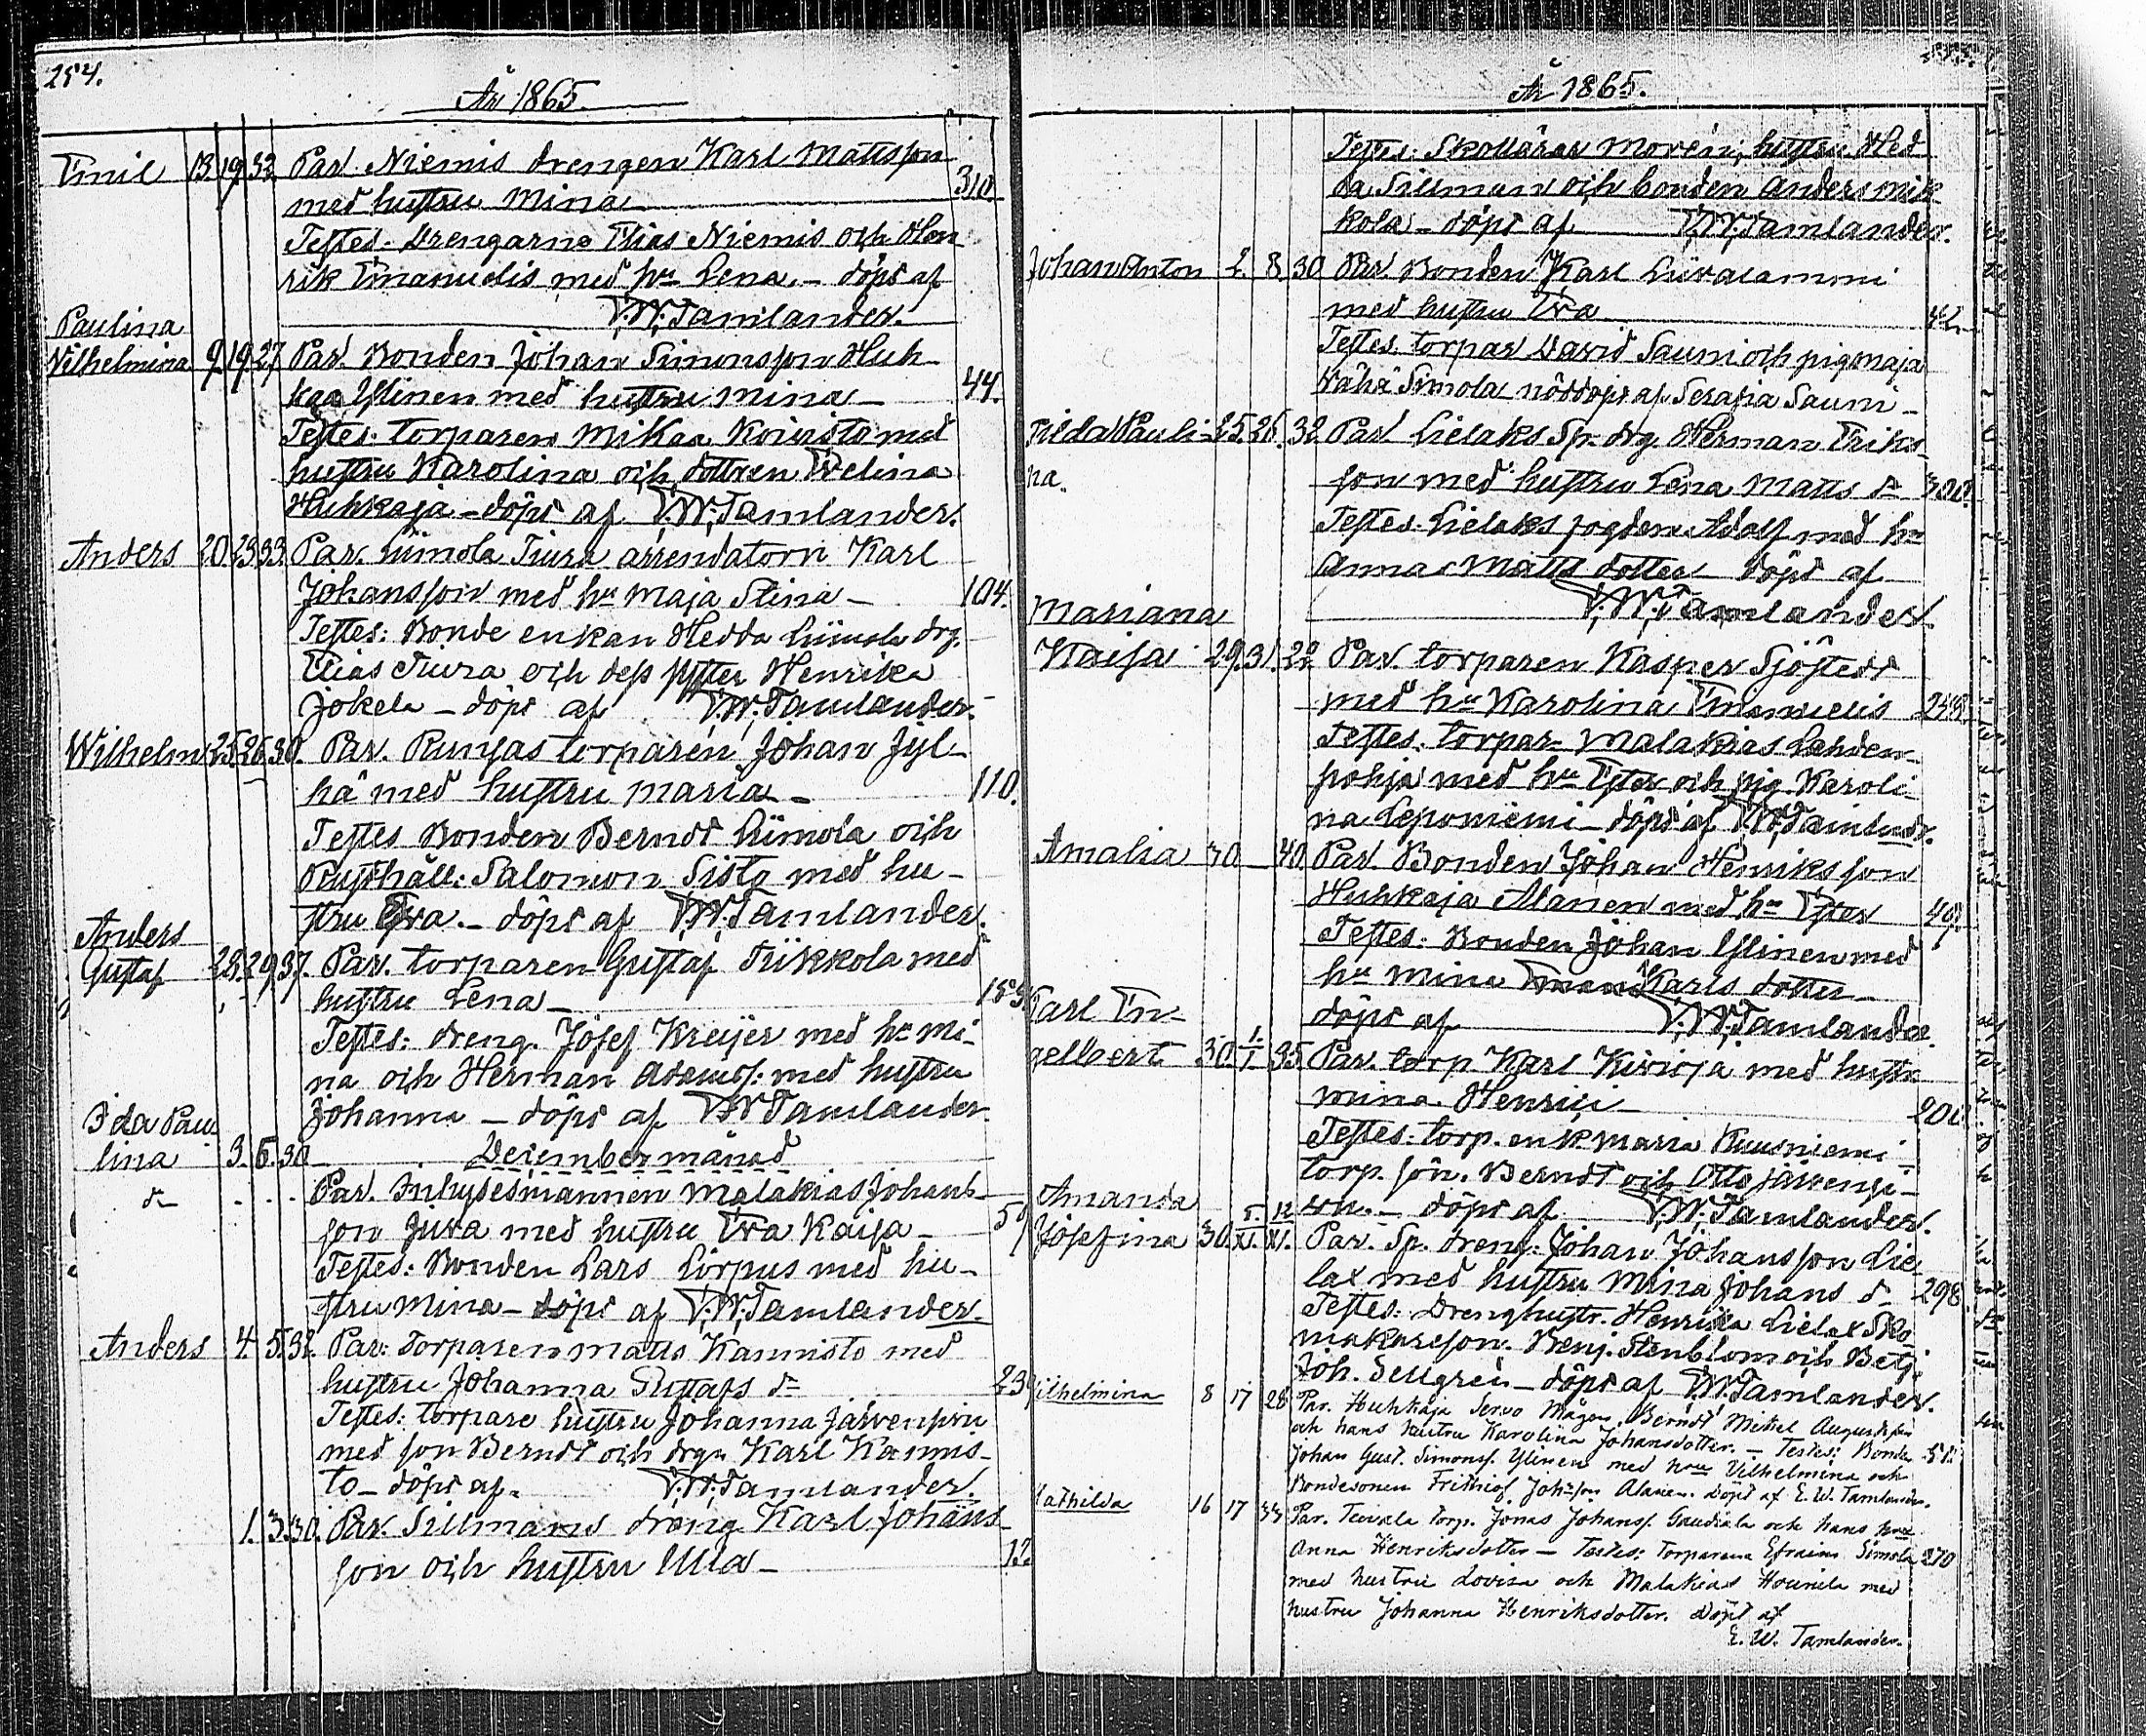 254.
År 1865.
Emil 13. 19. 32. Par. Niemis drengen Karl Mattsson
med hustru Mina 310.
Testes. Drengarne Elias Niemis och Hen
rik Emanuelis med hu Lena. – döpt af
E.W.Tamlander.
Paulina
Vilhelmina 9. 19. 27 Par. Bonden Johan Simonsson Huh-
kaa Ylinen med hustru Mina – 44.
Testes. torparen Mikaa Koivisto med
hustru Karolina och dottren Evelina
Huhkaja – döpt af E.W.Tamlander.
Anders 20. 23. 33. Par. Liimola Tiura arrendatorn Karl
Johansson med hu Maja Stina – 104.
Testes: Bonde enkan Hedda Liimola drg.
Elias Tiura och dess syster Henrika
Jokela – döpt af E.W.Tamlander.
Wilhelm 25. 26. 30. Par. torparen Johan Jyl-
hä med hustru Maria – 110.
Testes Bonden Berndt Liimola och
Rusthåll: Salomon Sisto med hu-
stru Eva. – döpt af E.W.Tamlander.
Anders
Gustaf 28. 29. 37. Par. torparen Gustaf Tiikkola med
hustru Lena –
Testes: dreng. Josef Kreijer med hu Mi-
na och Herman Adamss: med hustru
Johanna – döpt af E.W.Tamlander.
Ida Pau
lina 3. 6. 30 December månad
d:o Par. Inhysesmannen Malakias Johans-
son Jura med hustru Eva Kaisa –
Testes: Bonden Lars Lörpus med hu-
stru Mina – döpt af E.W.Tamlander.
Anders 4. 5. 32. Par: Torparen Matts Kannisto med
hustru Johanna Gustafs dr 23
Testes: torpare hustru Johanna Järvenpru
med son Berndt och drgn Karl Kannis-
to – döpt af. E.W.Tamlander.
1. 3. 30. Par. Sillmans dreng Karl Johans-
son och hustru Ulla – 12.
År 1865.
Testes: Skollärar Morén, hustru Hed
da Sillman och bonden Anders Mik
kola – döpt af E.W.Tamlander.
Johan Anton 2. 8. 30 Par. Bonden Karl Liivalammi
med hustru Eva 42
Testes. torpar David Sauni och pig Maja
Vähä Simola nöddöpt af Serafia Sauni –
Tilda Pauli- 25. 26. 32 Par Lielaks Sp. drg. Herman Eriks-
na. son med hustru Lena Matts dr 300.
Testes. Lielaks fogden Adolf med hu
Anna Matts dotter – döpt af
E.W.Tamlander.
Mariana
Kaisa 29. 31. 22 Par. torparen Kasper Sjöstedt
med hu Karolina Emanuelis
Testes. torpar: Malakias Lehden-
pohja med hu Ester och pig. Karoli
na Leponiemi – döpt af E.W.Tamlandr.
Amalia 30 – 40. Par. Bonden Johan Henriksson
Huhkaja Alanen med hu Ester 40.
Testes: Bonden Johan Ylinen med
hu Mina Karls dotter –
döpt af E.W.Tamlander.
Karl En-
gelbert 30. 1. 1. 35 Par. torp. Karl Kivioja med hustr.
Mina. Henrici – 200
Testes: torp. enk. Maria Kuusniemi
torp. sön. Berndt och Otto Järvensi-
vu. – döpt af E.W.Tamlander.
Amanda
Josefina 30. 5. XI. 12 XI. Par. Sp. dreng: Johan Johansson Lie-
lax med hustru Mina Johans dr 298.
Testes: Drenghustr. Henrika Lielax Sko
makareson. Benj. Stenblom och Betj.
Joh. Sellgrén – döpt af E.W.Tamlander.
Vilhelmina 8 17 28 Par. Huhkaja Servo Mågen Berndt Mikel Augustsson
och hans hustru Karolina Johansdotter. – Testes: Bonden
Johan Gust. Simonss. Ylinen med hru Vilhelmina och
Bondesonen Frithiof Johsson Alanen. döpt af E.W. Tamlander.
Mathilda 16 17 33 Par. Tervala torp. Jonas Johanss. Gaudiala och hans hru
Anna Henriksdotter – Testes: Torparena Efraim Simola 270
med hustru Lovisa och Malakias Hounila med
hustru Johanna Henriksdotter. döpt af
E. W. Tamlander.